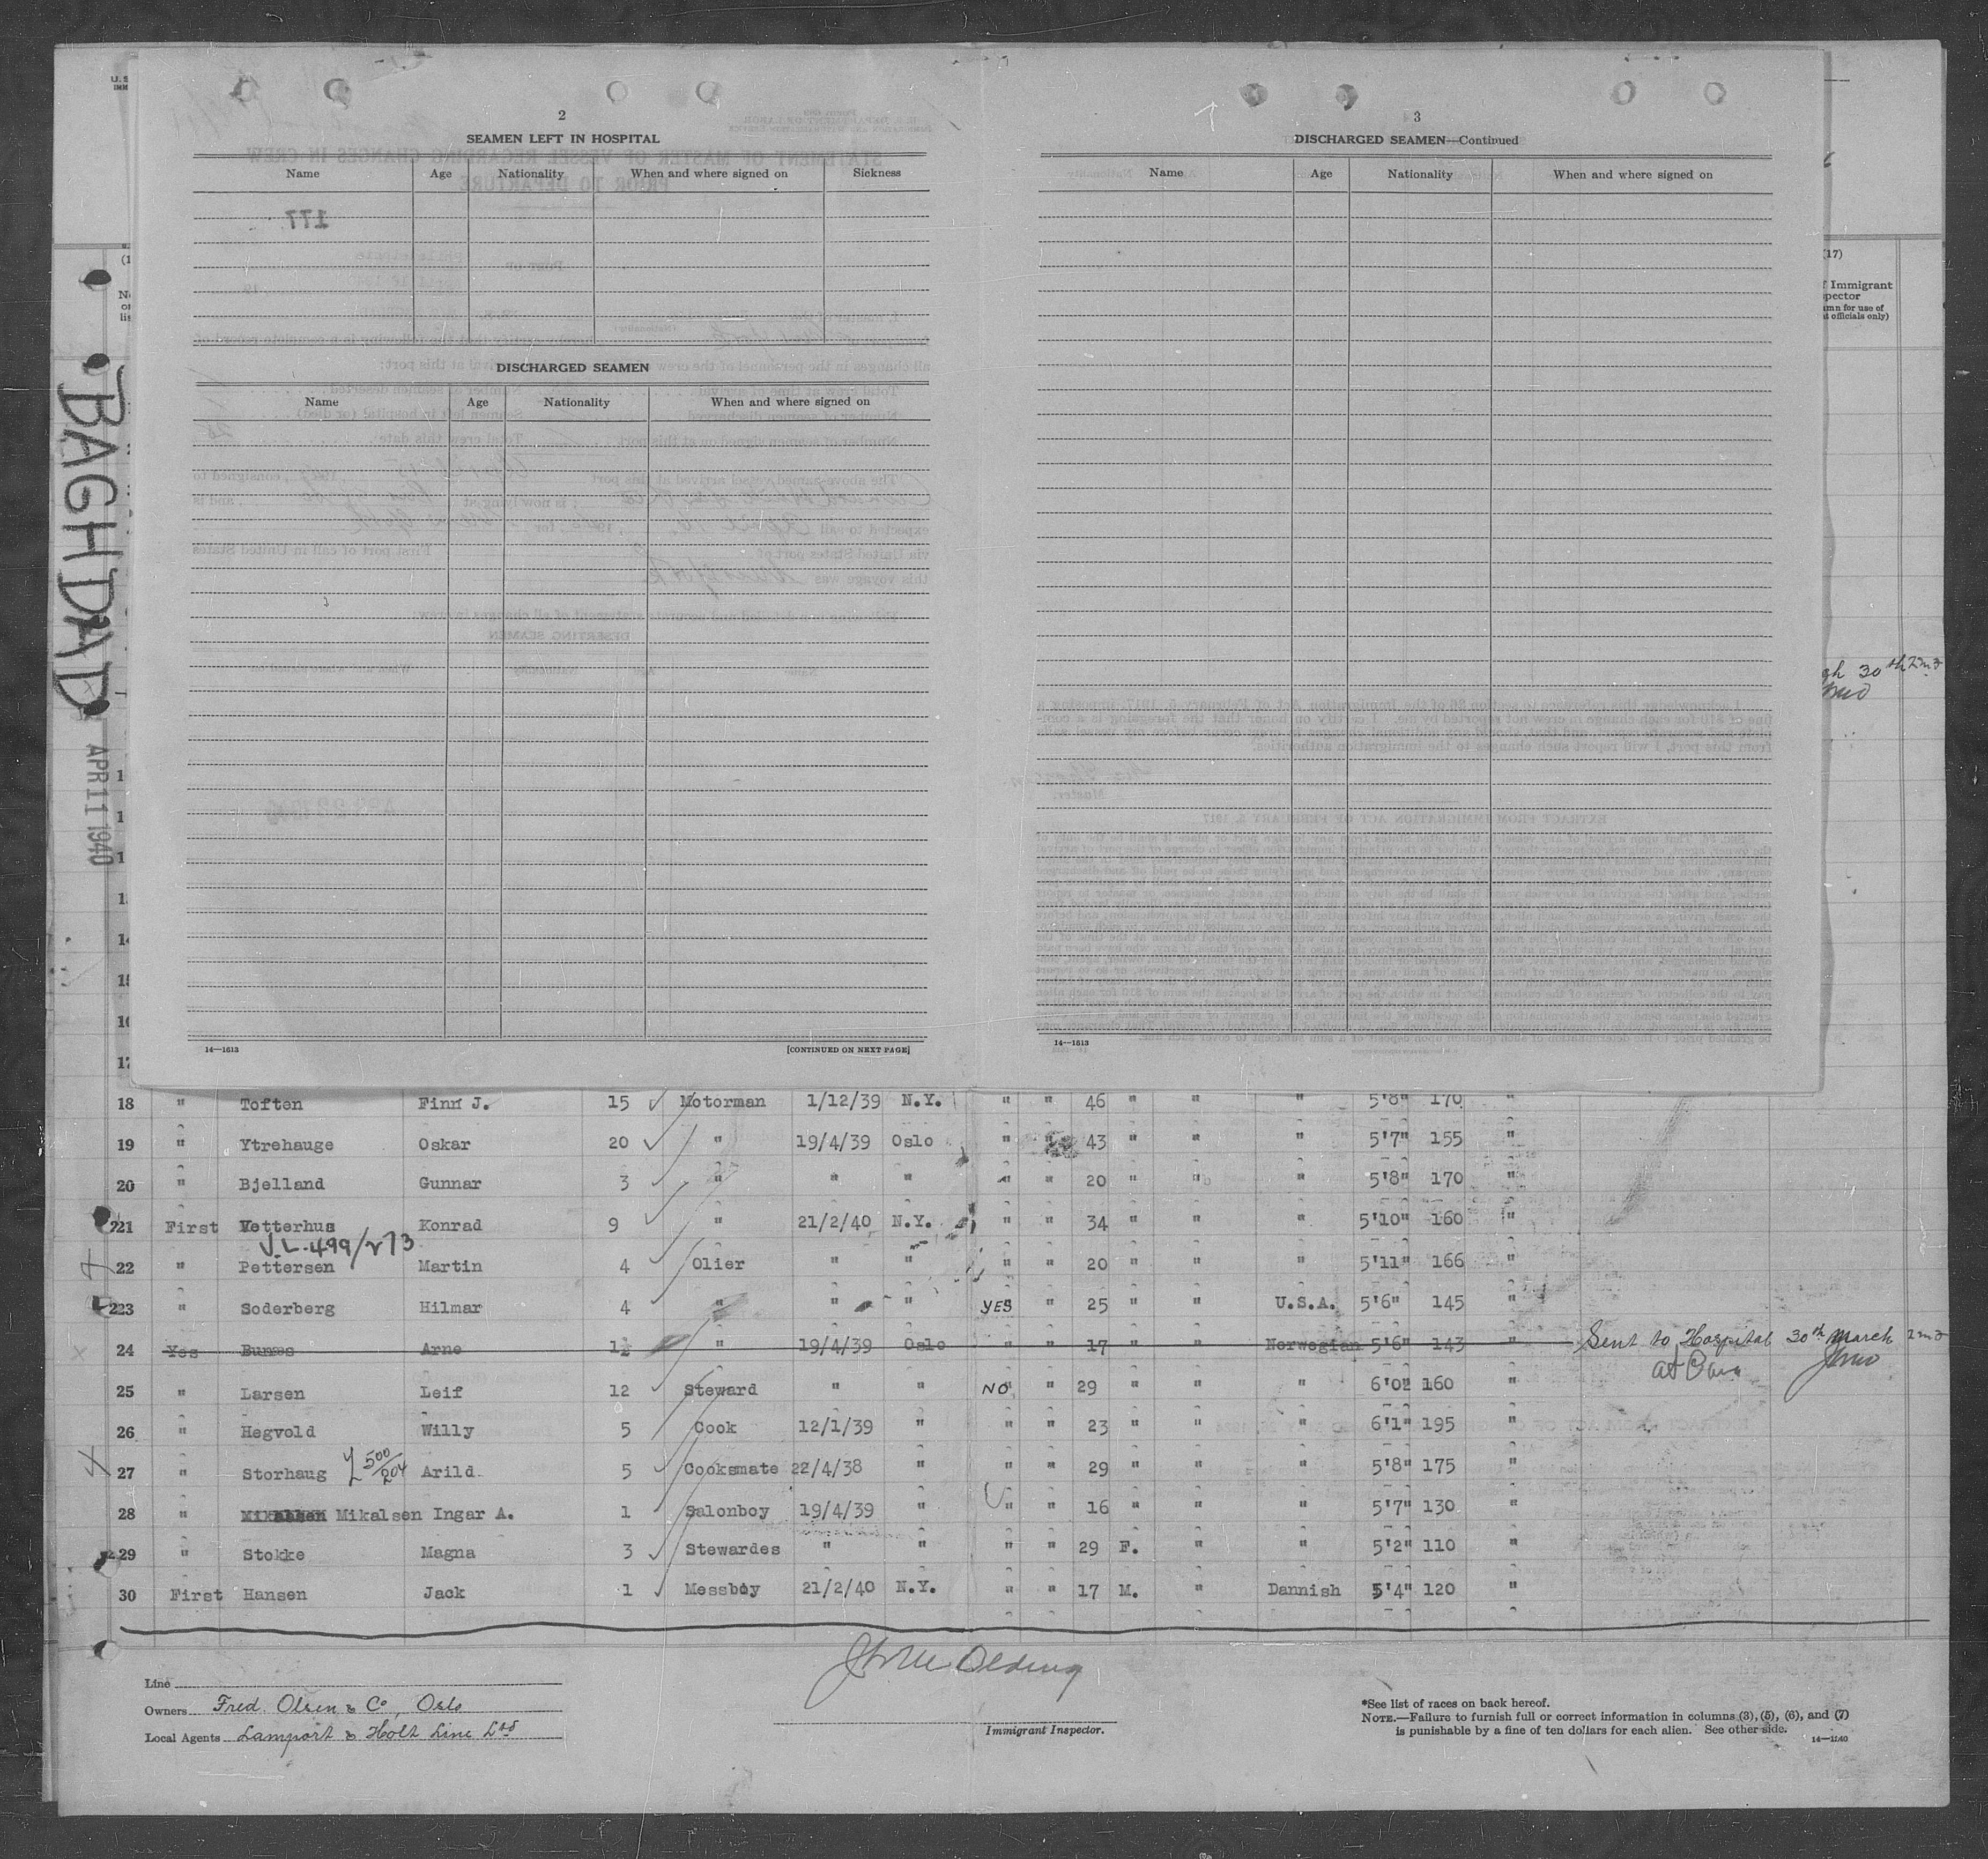 2
SEAMEN LEFT IN HOSPITAL
Name Age Nationality When and where signed on Sickness
177
DISCHARGED SEAMEN
Name Age Nationality When and where signed on
14—1613 [CONTINUED ON NEXT PAGE]
3
DISCHARGED SEAMEN—Continued
Name Age Nationality When and where signed on
14—1613
BAGHDAD
APR 11 1940
(17)
f Immigrant
pector
mn for use of
t officials only)
gh 30th 2nd
18 " Toften Finn J. 15 Motorman 1/12/39 N.Y. " " 46 " " " 5'8" 170 "
19 " Ytrehauge Oskar 20 " 19/4/39 Oslo " " 43 " " " 5'7" 155 "
20 " Bjelland Gunnar 3 " " " " " 20 " " " 5'8" 170 "
21 First Vetterhus Konrad 9 " 21/2/40 N.Y. " " 34 " " " 5'10" 160 "
V.L. 499/273
22 " Pettersen Martin 4 Olier " " " " 20 " " " 5'11" 166 "
23 " Soderberg Hilmar 4 " " " YES " 25 " " U.S.A. 5'6" 145 "
24 Yes Bunes Arne 1½ " 19/4/39 Oslo " " 17 " " Norwegian 5'6" 143 " Sent to Hospital 30th March 2nd
at
25 " Larsen Leif 12 Steward " " NO " 29 " " " 6'0" 160 "
26 " Hegvold Willy 5 Cook 12/1/39 " " " 23 " " " 6'1" 195 "
27 " Storhaug 500/204 Arild 5 Cooksmate 22/4/38 " " " 29 " " " 5'8" 175 "
28 " Mikalsen Ingar A. 1 Salonboy 19/4/39 " " " 16 " " " 5'7" 130 "
29 " Stokke Magna 3 Stewardes " " " " 29 F. " " 5'2" 110 "
30 First Hansen Jack 1 Messboy 21/2/40 N.Y. " " 17 M. " Dannish 5'4" 120 "
Line
Owners Fred. Olsen & Co, Oslo
Local Agents Lamport & Holt Line Ltd
Immigrant Inspector.
*See list of races on back hereof.
NOTE.—Failure to furnish full or correct information in columns (3), (5), (6), and (7)
is punishable by a fine of ten dollars for each alien. See other side.
14—1140